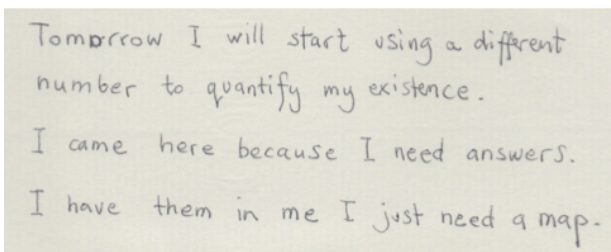 Tomorrow I will start using a different
number to quantify my existence.
I came here because I need answers.
I have them in me I just need a map.